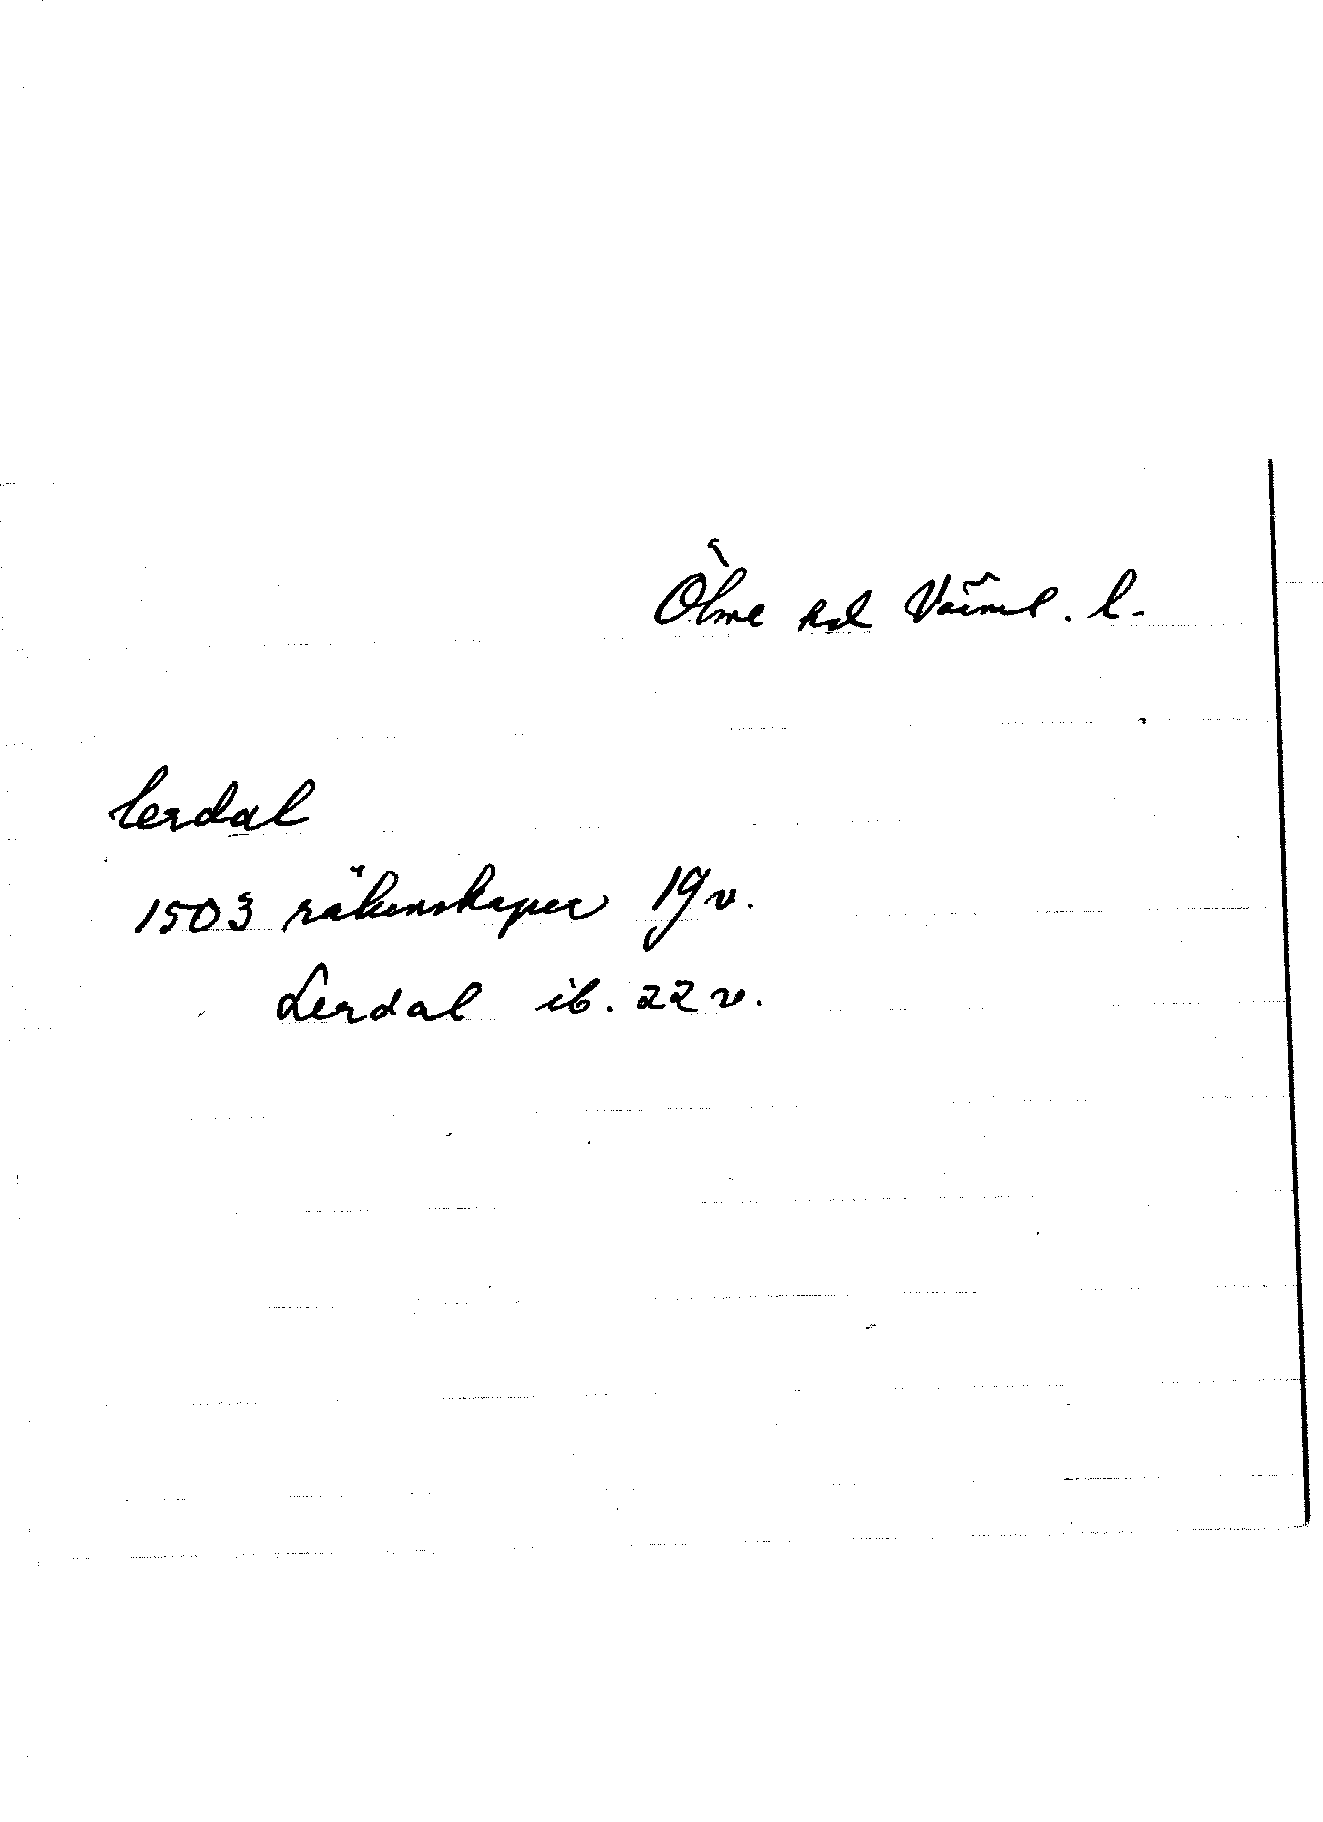 Ölme hd Värml. l.
lerdal
1503 räkenskaper 19 v.
Lerdal ib. 22 v.